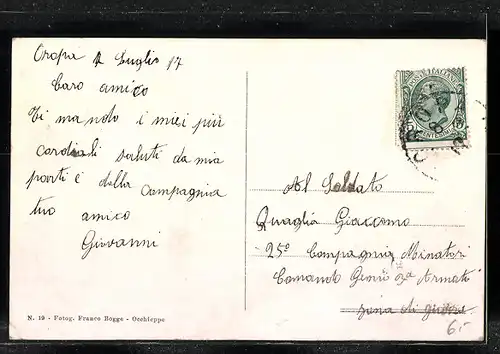 Oropa 2 Luglio 17
Caro amico
Ti mando i miei più
cordiali saluti da mia
parti e dalla Compagnia
tuo amico
Giovanni
N. 19 - Fotog. Franco Bogge - Occhieppo
POSTE ITALIANE
Al Soldato
Quaglia Giacomo
25° Compagnia Minatori
Comando Genio 2a Armata
zona di guerra
6.-